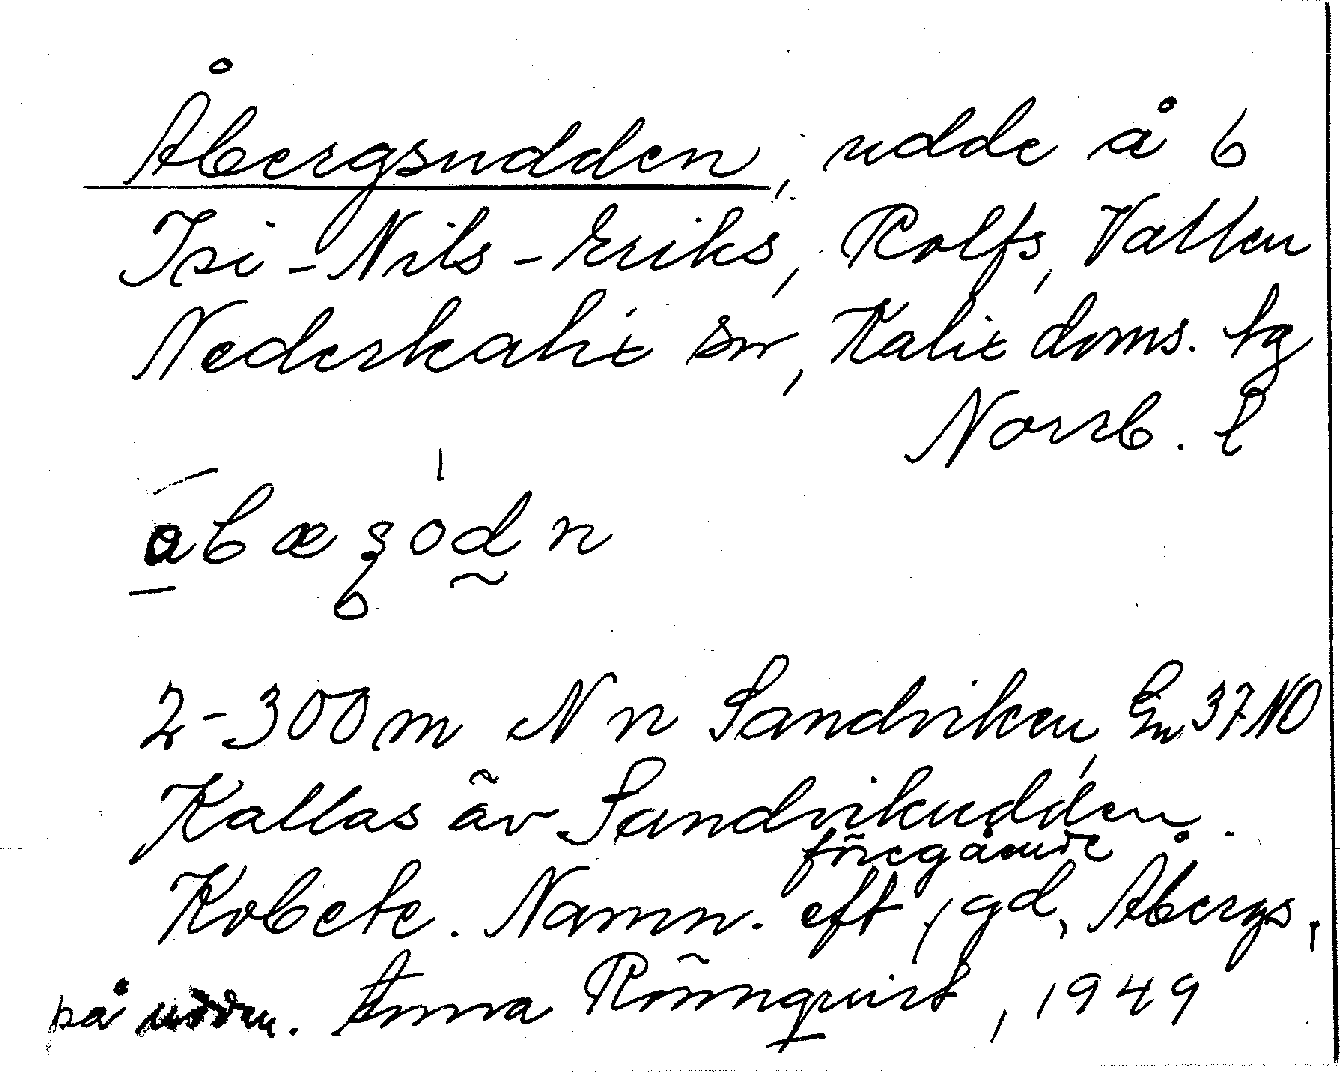 Åbergsudden, udde å 6
Isi-Nils-Eriks, Rolfs, Vallen
Nederkalix sn, Kalix doms. tg
Norrb. l
2-300 m N n Sandviken, Gm 37 NO
Kallas äv Sandvikudden.
föregående
Kobete. Namn. eft, gd, Åbergs,
på udden. Anna Rönnquist, 1949